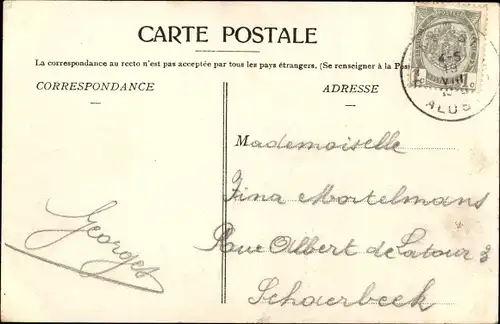 CARTE POSTALE
La correspondance au recto n'est pas acceptée par tous les pays étrangers, (Se renseigner à la
CORRESPONDANCE
ADRESSE
4-5
VIII
Mademoiselle
Fina Mortelmans
Rue Albert de Latour
Schaerbeek
Georges